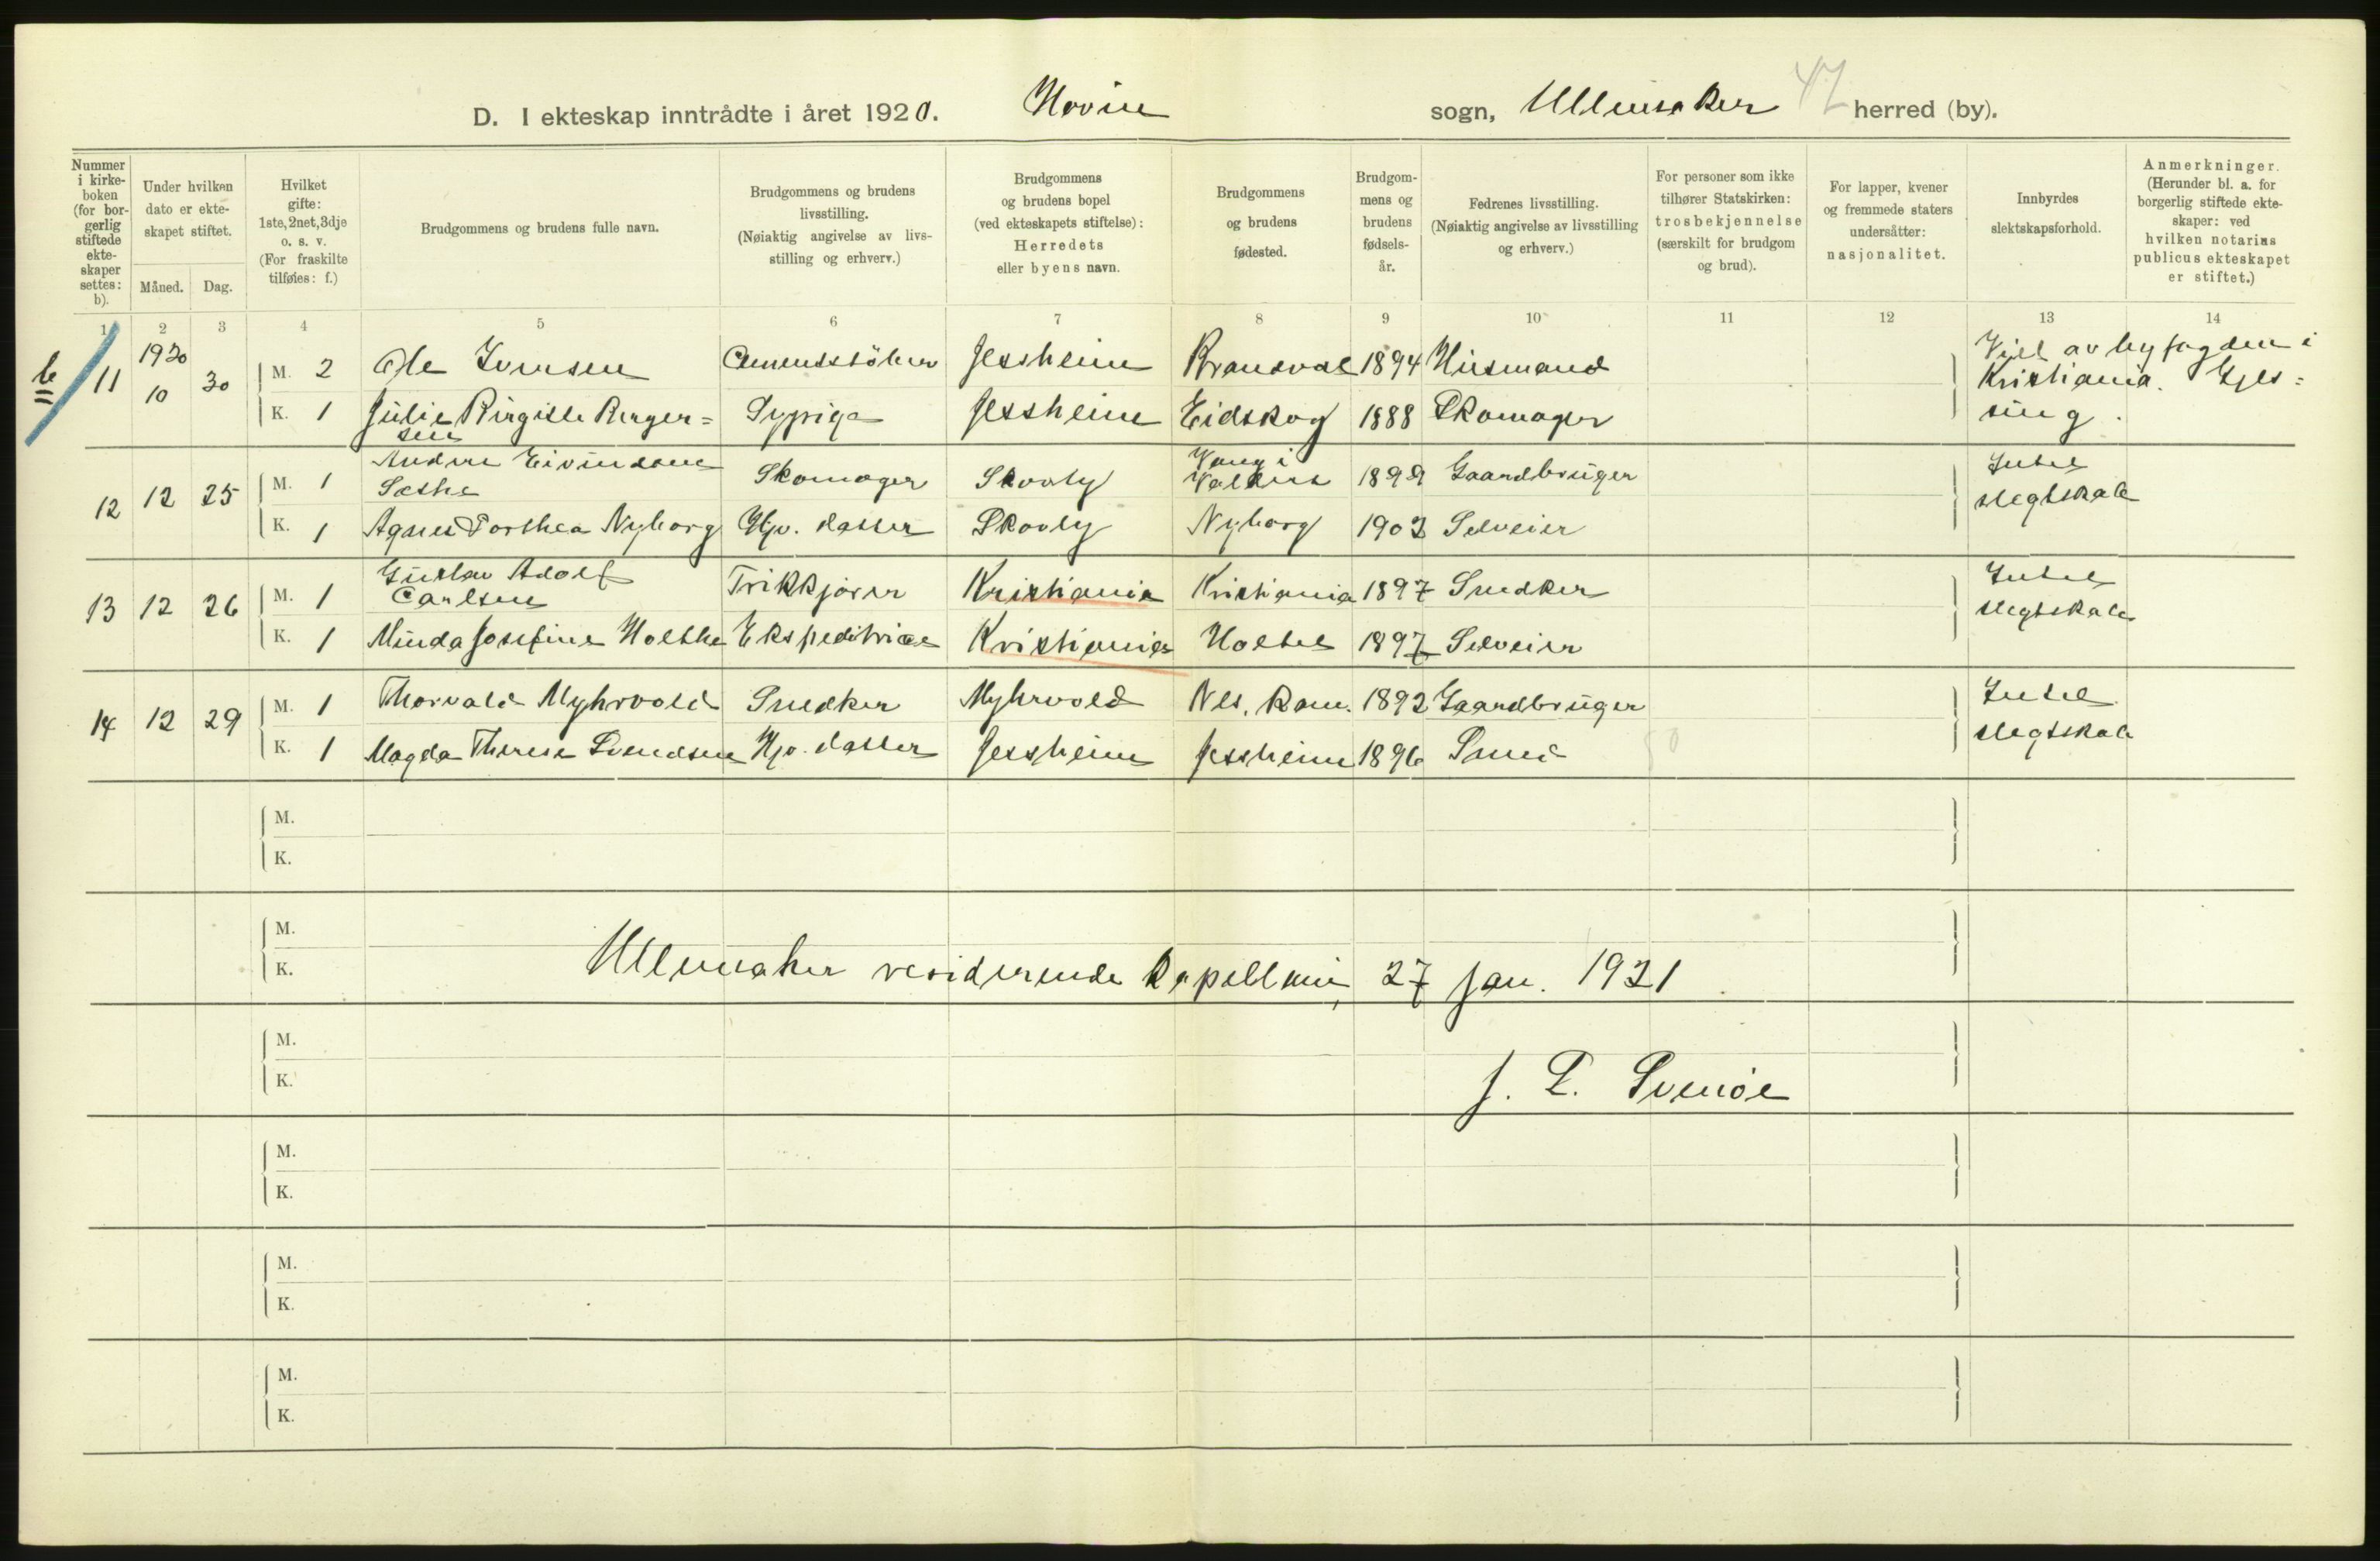 D. I ekteskap inntrådte i året 1920. Hovin sogn, Ullensaker 47 herred (by).
Nummer i kirke- boken (for bor- gerlig stiftede ekte- skaper settes: b).
Under hvilken dato er ekte- skapet stiftet.
Måned. Dag.
Hvilket gifte: 1ste, 2net, 3dje o. s. v. (For fraskilte tilføies: f.)
Brudgommens og brudens fulle navn.
Brudgommens og brudens livsstilling. (Nøiaktig angivelse av livs- stilling og erhverv.)
Brudgommens og brudens bopel (ved ekteskapets stiftelse): Herredets eller byens navn.
Brudgommens og brudens fødested.
Brudgom- mens og brudens fødsels- år.
Fedrenes livsstilling. (Nøiaktig angivelse av livsstilling og erhverv.)
For personer som ikke tilhører Statskirken: trosbekjennelse (særskilt for brudgom og brud).
For lapper, kvener og fremmede staters undersåtter: nasjonalitet.
Innbyrdes slektskapsforhold.
Anmerkninger. (Herunder bl. a. for borgerlig stiftede ekte- skaper: ved hvilken notarius publicus ekteskapet er stiftet.)
1 2 3 4 5 6 7 8 9 10 11 12 13 14
b 11 1920 10 30 M. 2 Ole Iversen Cementstöber Jessheim Brandval 1894 Husmand
Viet av byfogden i
Kristiania. Gjes=
sing.
K. 1 Julie Birgitte Berger=
sen Sypige Jessheim Eidskog 1888 Skomager
12 12 25 M. 1 Anders Eivindson
Sæthe Skomager Skovly Vang i
Valdres 1899 Gaardbruger Intet
slegtskab
K. 1 Agnes Dorthea Nyborg Hjv. datter Skovly Nyborg 1903 Selveier
13 12 26 M. 1 Gustav Adolf
Carlsen Trikkjører Kristiania Kristiania 1897 Snedker Intet
slegtskab
K. 1 Minda Josefine Holthe Ekspeditrice Kristiania Holtet 1897 Selveier
14 12 29 M. 1 Thorvald Myhrvold Snedker Myhrvold Nes, Rom. 1892 Gaardbruger Intet
slegtskab
K. 1 Magda Therese Svendsen Hjv. datter Jessheim Jessheim 1896 Smed
M.
K.
M.
K.
Ullensaker residerende kapellani, 27 jan. 1921
M.
K.
J. L. Svenöe
M.
K.
M.
K.
M.
K.